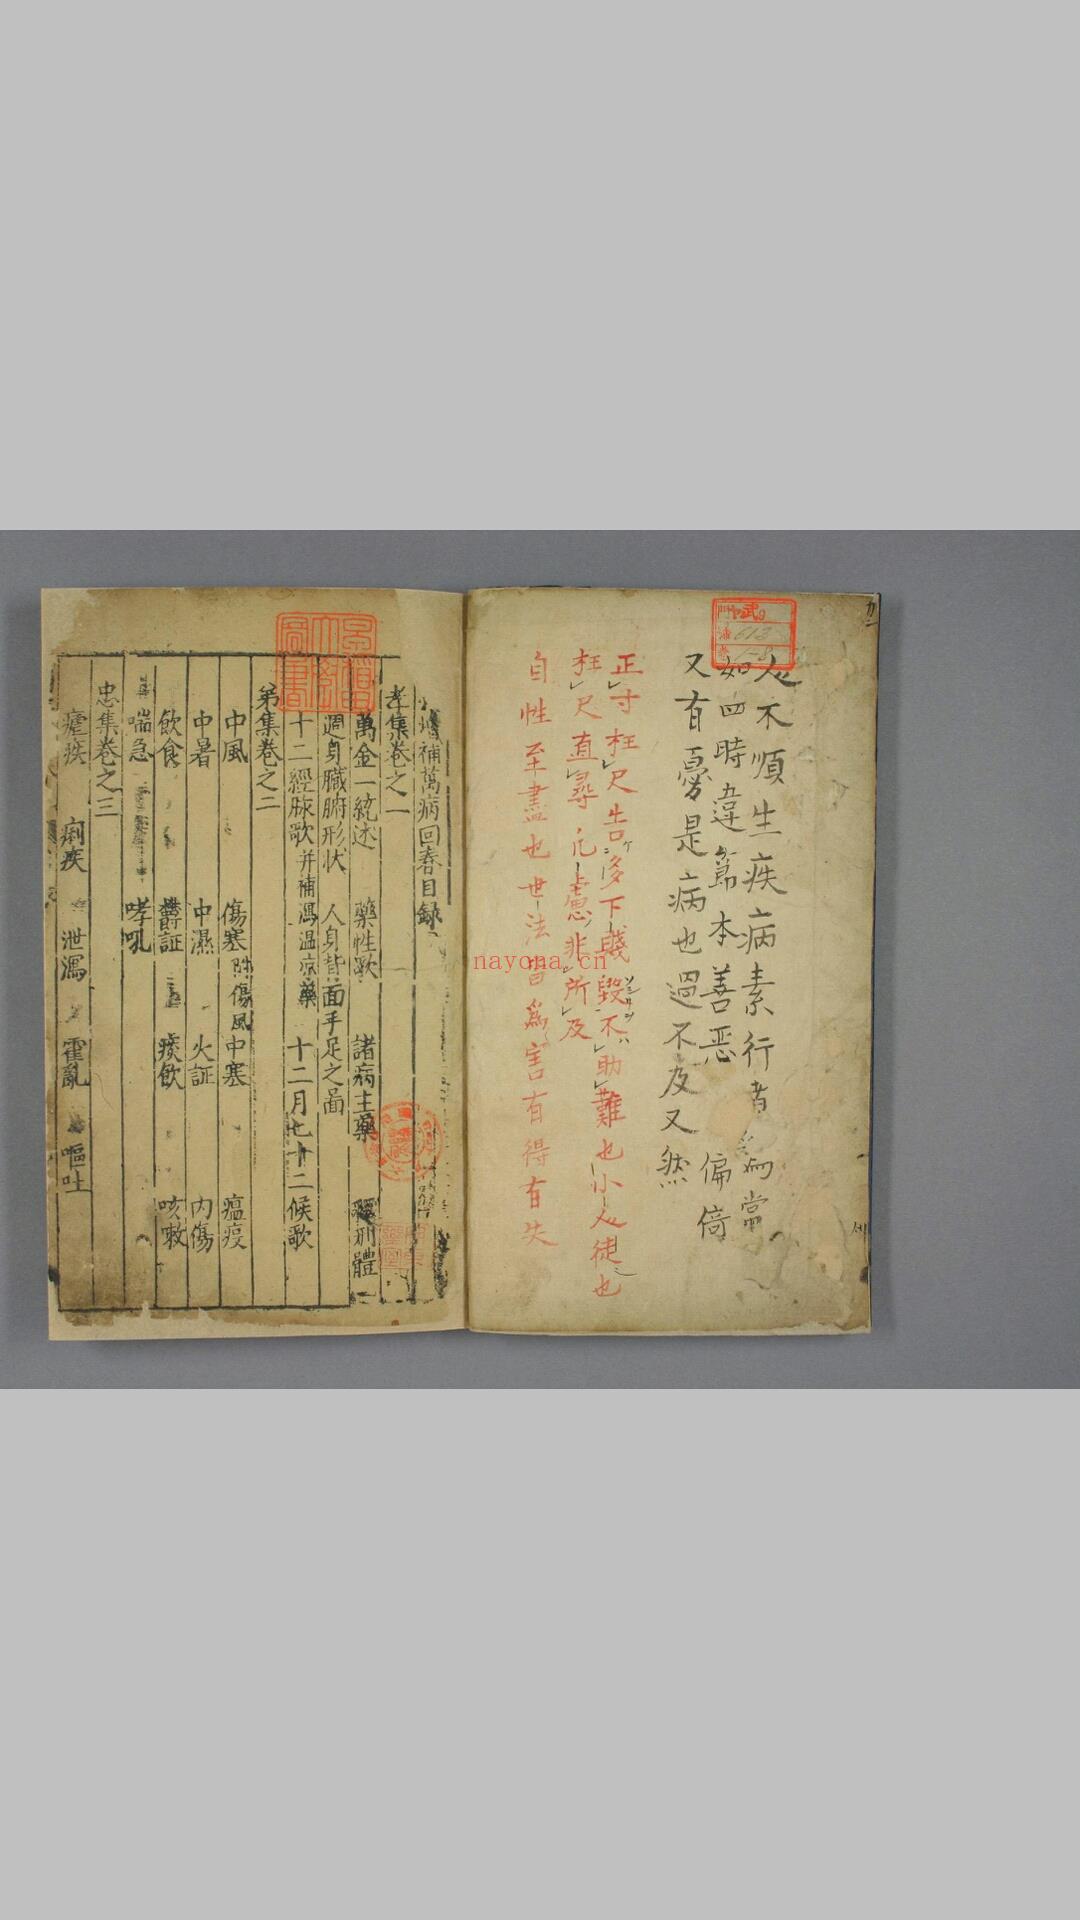 人不順生疾病素行者為而常
如四時違節本善惡偏倚
又有憂是病也過不及又然
正寸枉尺吉多下賤毀不助難也小人徒也
枉尺直尋凡慮非所及
自性至盡也世法皆為害有得有失
補萬病回春目錄
孝集卷之一
萬金一統述 藥性歌 諸病主藥 形體
週身臟腑形狀 人身背面手足之圖
十二經脉歌并補瀉温凉藥 十二月七十二候歌
弟集卷之二
中風 傷寒附傷風 中寒 瘟疫
中暑 中濕 火証 内傷
飲食 鬱証 痰飲 咳嗽
喘急 哮吼
忠集卷之三
瘧疾 痢疾 泄瀉 霍亂 嘔吐
nayona.cn